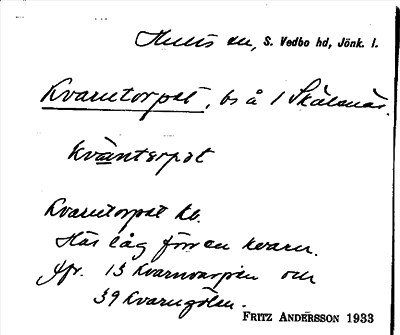 Hults sn, S. Vedbo hd, Jönk. l.
Kvarntorpet, bs å 1 Skälsnäs.
Kväntorpet
Kvarntorpet kb.
Här låg förr en kvarn.
Jfr. 13 Kvarnvarpien och
39 Kvarngölen.
FRITZ ANDERSSON 1933